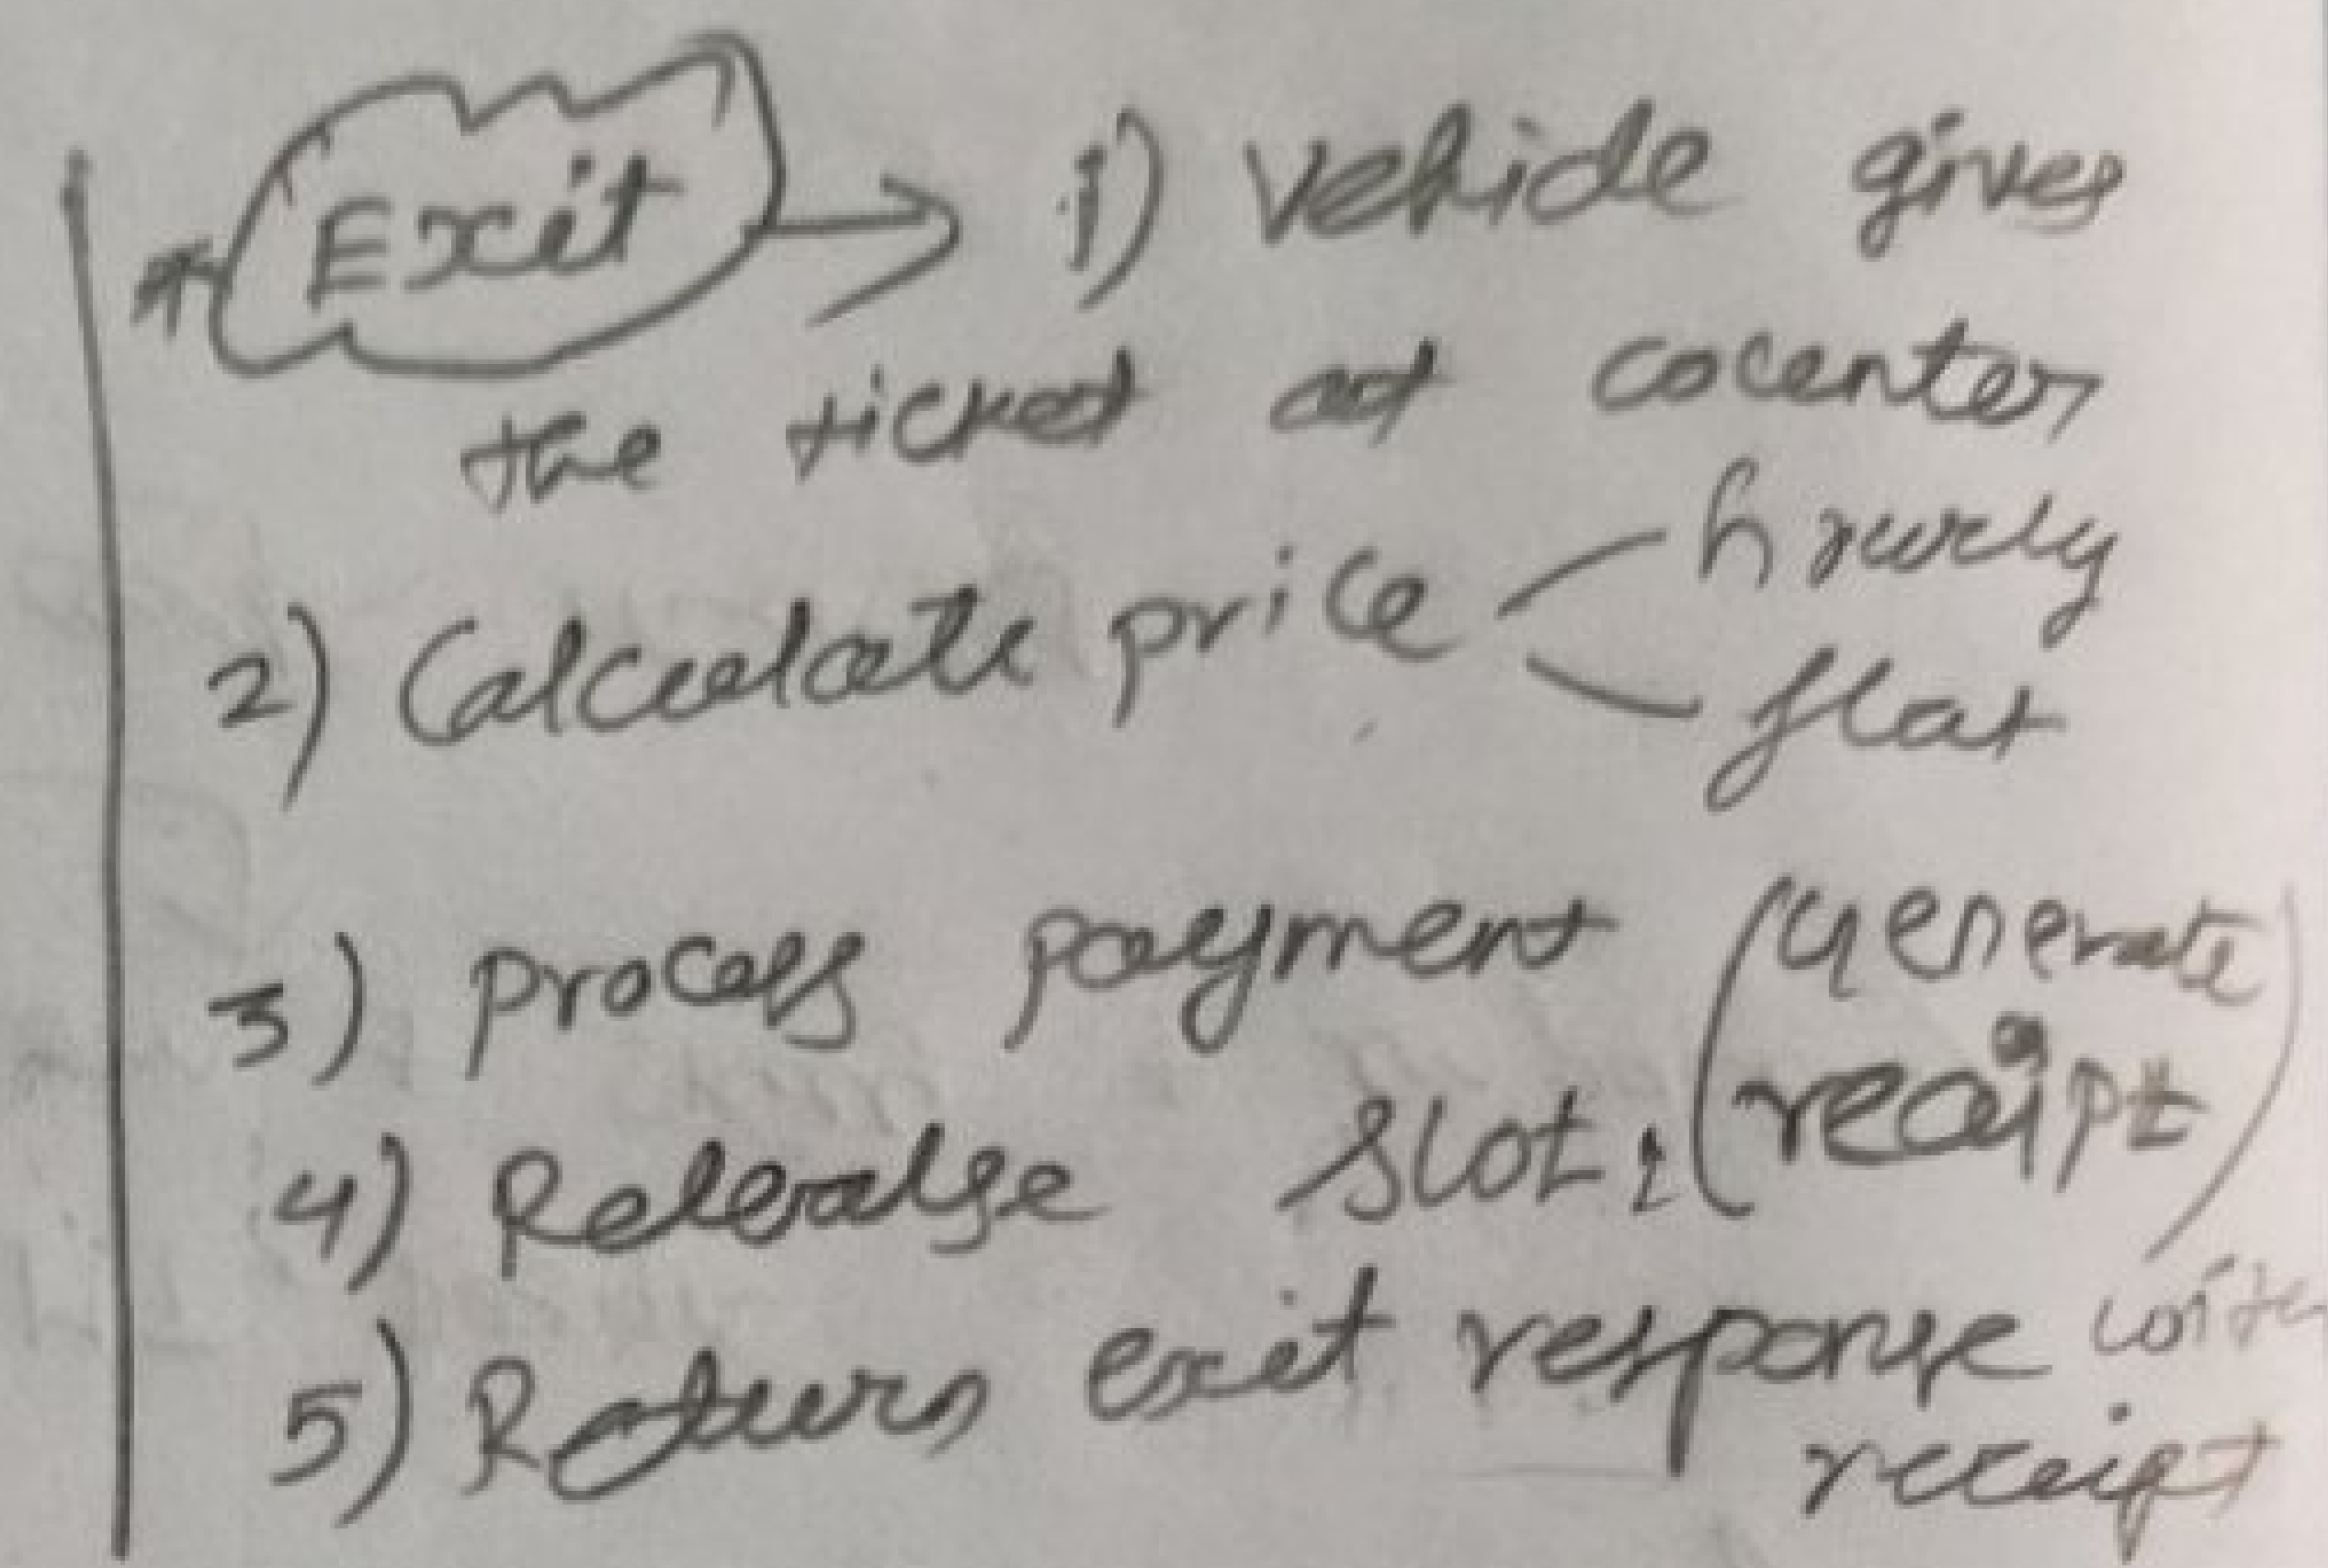 Exit → 1) Vehicle gives
the ticket at counter
2) Calculate price hrurly
flat
3) process payment (Generate
receipt)
4) Release slot
5) Return exit response with
receipt